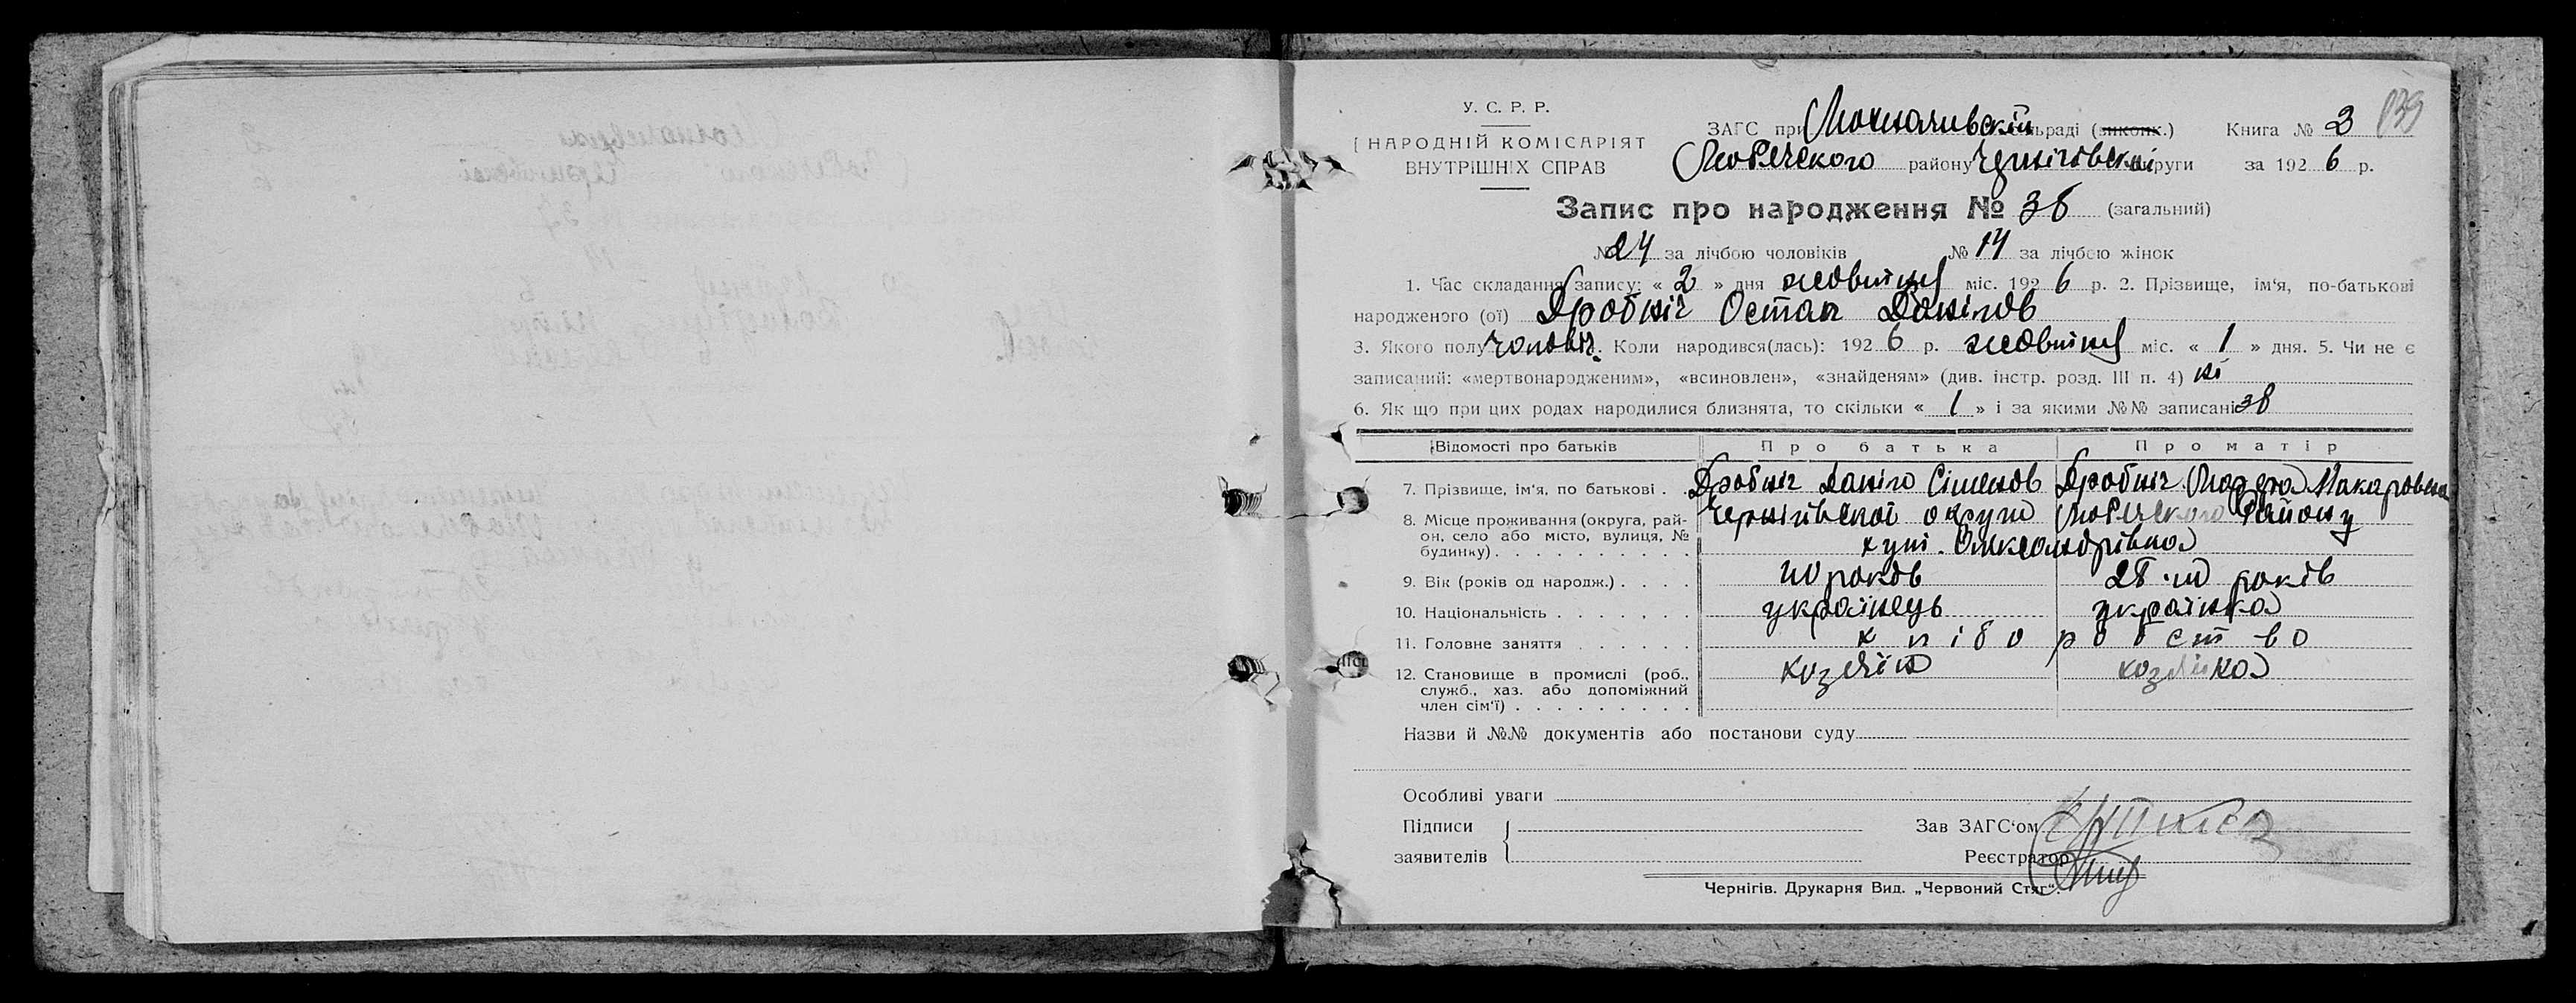 У. С. Р. Р.
НАРОДНІЙ КОМІСАРІЯТ
ВНУТРІШНІХ СПРАВ
139
ЗАГС при Мохначивскій сільраді (виконк.) Книга № 3
Любечского району Чернігівскоі округи за 1926 р.
Запис про народження № 38 (загальний)
№ 24 за лічбою чоловіків № 14 за лічбою жінок
1. Час складання запису: « 2 » дня жовтня міс. 1926 р. 2. Прізвище, ім'я, по-батькові
народженого (ої) Дробніч Остап Данілов
3. Якого полу чоловіч. Коли народився(лась): 1926 р. жовтня міс. « 1 » дня. 5. Чи не є
записаний: «мертвонародженим», «всиновлен», «знайденям» (див. інстр. розд. III п. 4) ні
6. Як що при цих родах народилися близнята, то скільки « 1 » і за якими №№ записані 38
Відомості про батьків Про батька Про матір
7. Прізвище, ім'я, по батькові . . Дробніч Даніло Сіменов Дробніч Макаровна
8. Місце проживання (округа, район, село або місто, вулиця, № будинку) . . . . . . . . . . Чернігівскоі округи Любечского Району
хут. Олександрівка
9. Вік (років од народж.) . . . . 40 років 28 років
10. Національність . . . . . . . українець українка
11. Головне заняття . . . . . . хліборобство
12. Становище в промислі (роб., служб., хаз. або допоміжний член сім'ї) . . . . . . . . . хозяїн хозяйка
Назви й №№ документів або постанови суду
Особливі уваги
Підписи
заявителів
Зав ЗАГС'ом
Реєстратор
Чернігів. Друкарня Вид. „Червоний Стяг“.